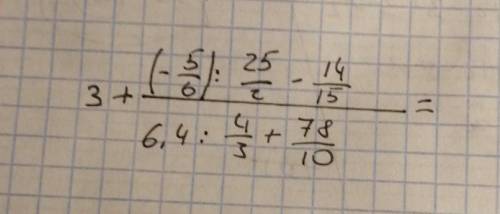 3 + ((-5/6) : 25/2 - 14/15) / (6,4 : 4/3 + 78/10) =